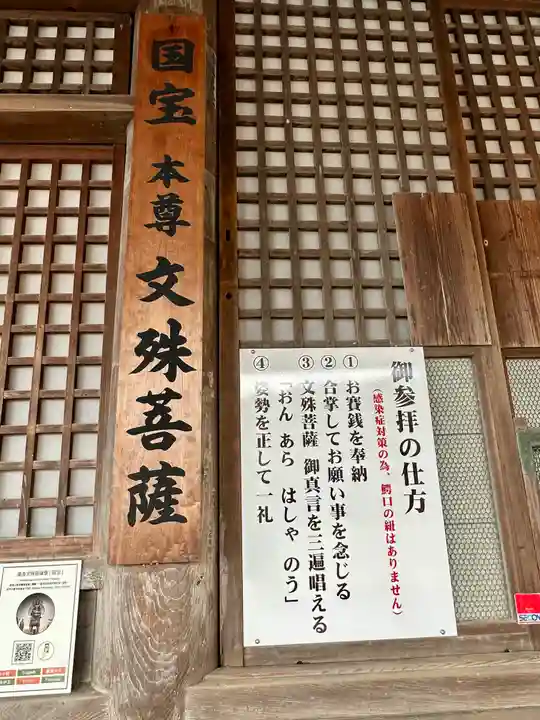 国宝 本尊 文殊菩薩
御参拝の仕方
(感染症対策の為、鰐口の紐はありません)
① お賽銭を奉納
② 合掌してお願い事を念じる
③ 文殊菩薩 御真言を三遍唱える
「おん あら はしゃ のう」
④ 姿勢を正して一礼